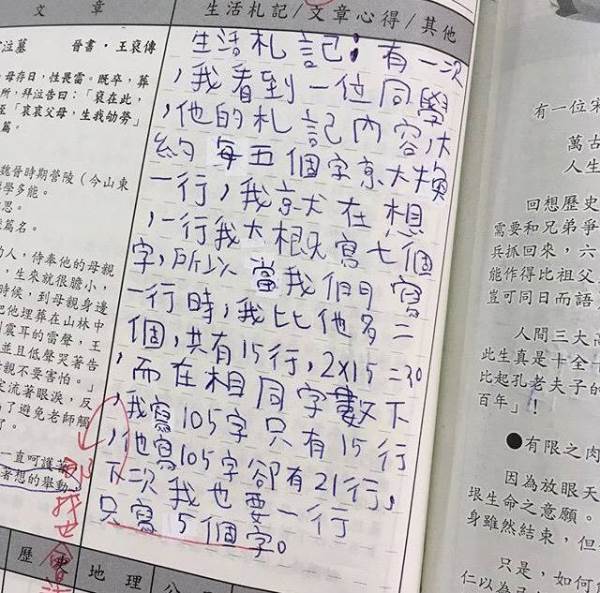 文章
生活札記/文章心得/其他
泣墓 晉書·王裒傳
母存日,性畏雷。既卒,葬
所,拜泣告曰:「裒在此,
至「哀哀父母,生我劬勞」
篇。
魏晉時期營陵(今山東
學多能。
思。
篇名。
的人,侍奉他的母親
,生來就很膽小,
時候,到母親身邊
把他埋葬在山林中
到震耳的雷聲,王
並且低聲哭著告
親不要害怕。」
定流著眼淚,反
為了避免老師觸
了。
一直呵護著
著想的舉動
生活札記:有一次
,我看到一位同學
,他的札記內容,大
約每五個字就換
一行,我就在想
,一行我大概寫七個
字,所以當我們寫
一行時,我比他多二
個,共有15行,2x15=30
,而在相同字數下
,我寫105字只有15行
,他寫105字卻有21行,
下次我也要一行
只寫5個字。
我也會
歷史 地理 公
有一位宋
萬古
人生
回想歷史
需要和兄弟爭
兵抓回來,六
能作得比祖父
豈可同日而語
人間三大
此生真是十全十
比起孔老夫子的
百年」!
●有限之肉
因為放眼天
垠生命之意願。
身雖然結束,但
只是,如何
仁以為己